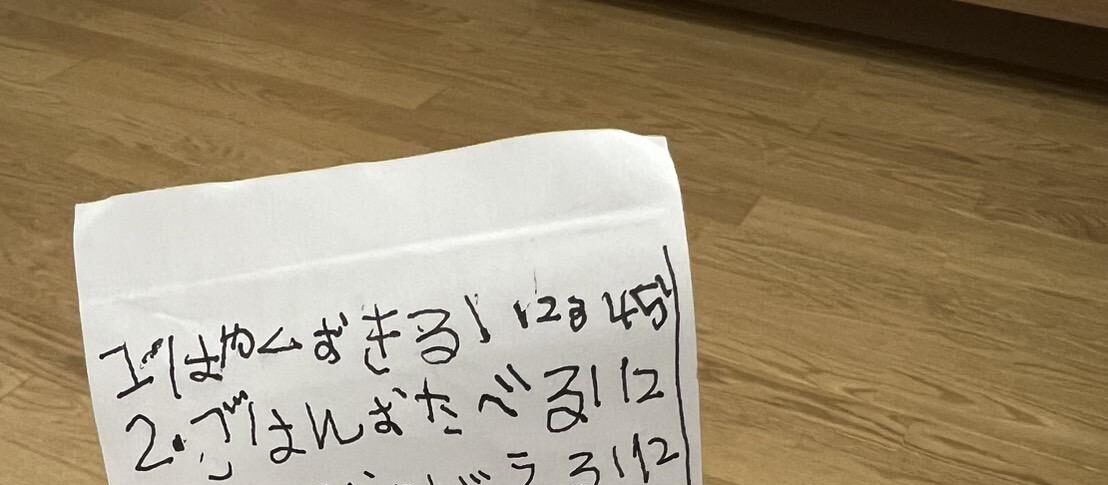 1.はやくおきる! 123 45
2.ごはんおたべる! 12